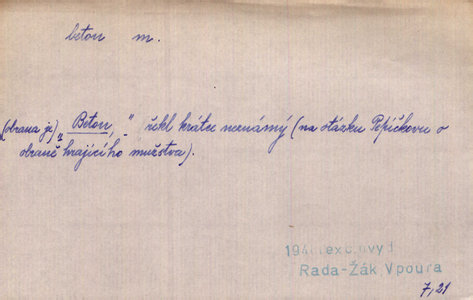 beton m.
(obrana je) „Beton,“ řekl krátce neznámý (na otázku Pepíčkovu o
obraně hrajícího mužstva).
Rada-Žák, Vpoura
7,21